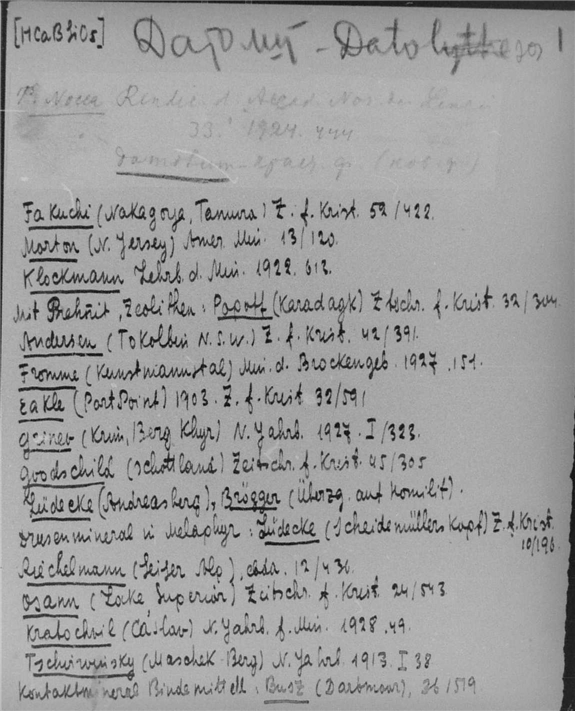 [HCaBSiO5] Датолит - Datolith 1
Rendic. d. Accad. Naz. dei Lincei
33. 1924. 444.
Fakuchi (Nakagoya, Tamura) Z. f. Krist. 52/422.
Morton (N. Jersey) Amer. Min. 13/120.
Klockmann Lehrb. d. Min. 1922. 612.
Mit Prehnit, Zeolithen: Popoff (Karadagh) Ztschr. f. Krist. 32/
Andersen (Tokolbin N.S.W.) Z. f. Krist. 42/391.
Fromme (Kunstmannstal) Min. d. Brockengeb. 1927. 151.
Eakle (Fort Point) 1903. Z. f. Krist 32/591
(Krim, Berg Khyr) N. Jahrb. 1927. I/323.
Goodschild (Schottland) Zeitschr. f. Krist. 45/305
Lüdecke (Andreasberg), Brögger (Überzg. auf Homilit).
Drusenmineral in Melaphyr: Lüdecke (Scheidemüllers Kopf) Z. f. Krist.
10/196.
Reichelmann (Seiser Alp), ebda. 12/436.
Osann (Lake Superior) Zeitschr. f. Krist. 24/543.
Kratochvil (Cáslav) N. Jahrb. f. Min. 1928. 49.
Tschirwinsky (Maschek-Berg) N. Jahrb. 1913. I 38
Kontaktmineral Bindemittel: Busz (Dartmoor), 36/519.